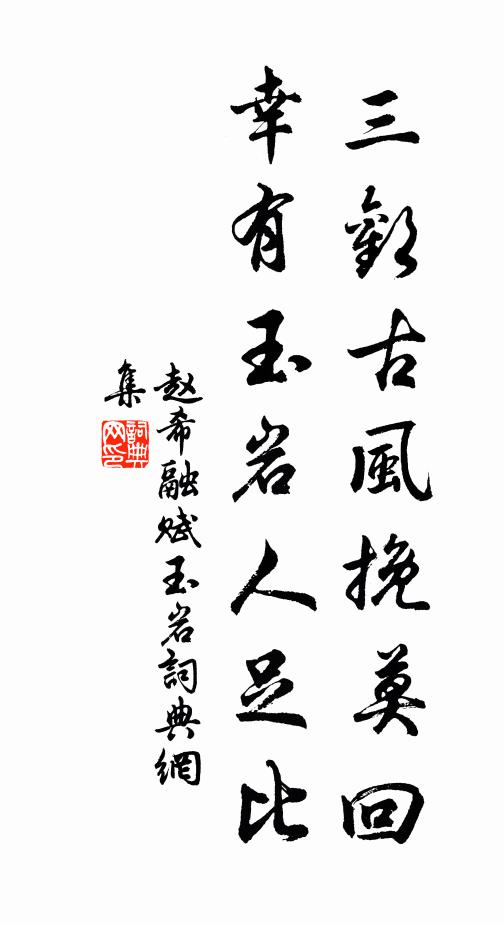 三歎古風挽莫回
幸有玉岩人足比
赵希融賦玉岩詞典網
集
詞典网印